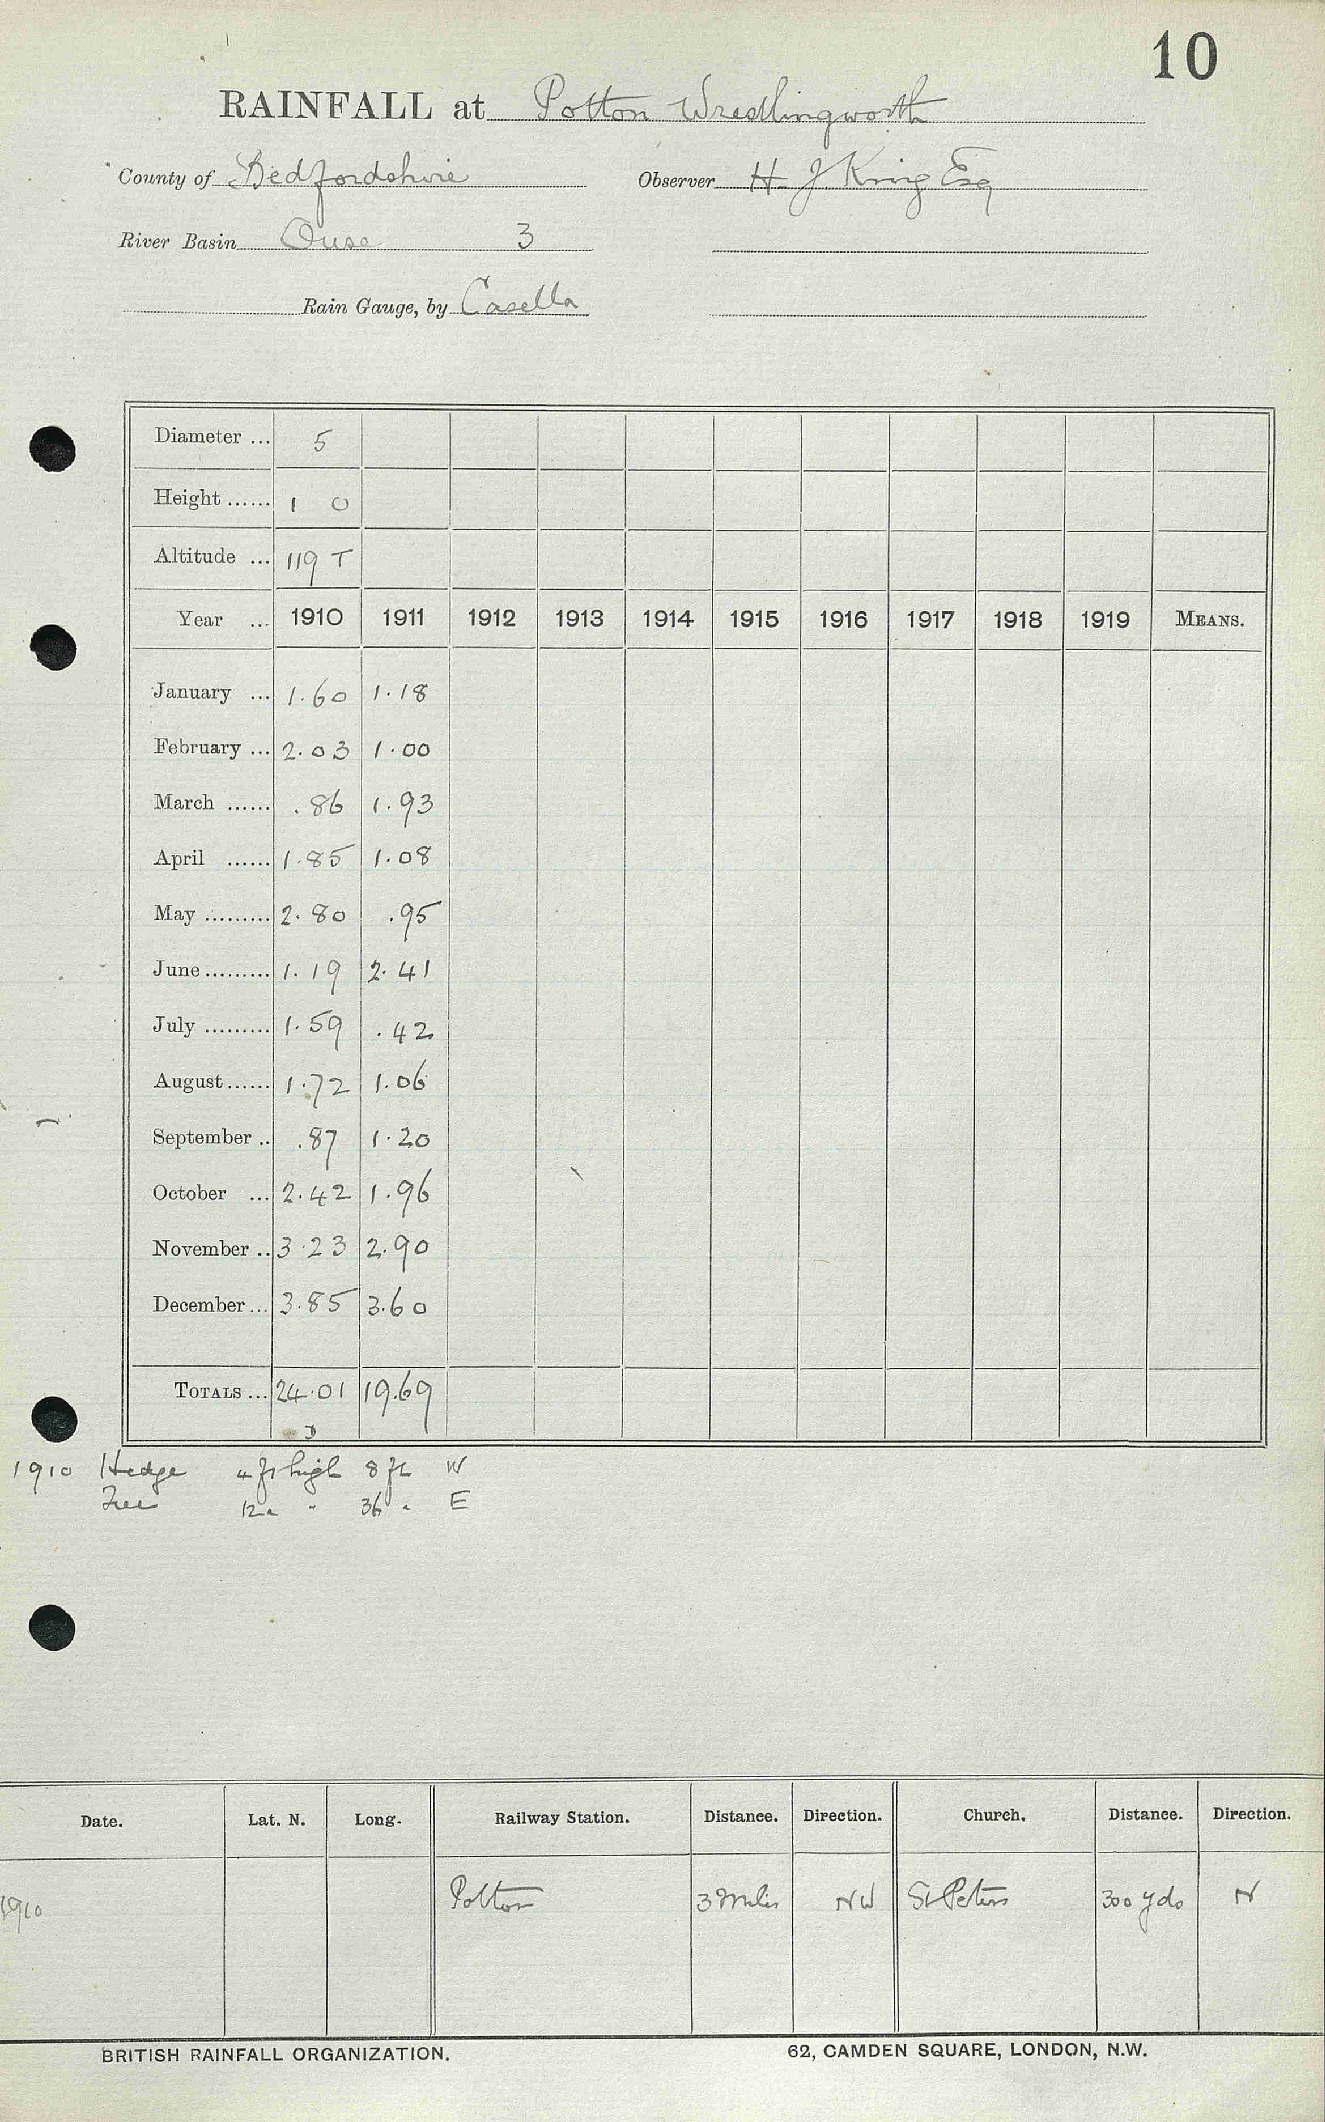 10
RAINFALL at Potton Wrestlingworth
County of Bedfordshire Observer H J King Esq
River Basin Ouse 3
Rain Gauge, by Casella
Diameter ... 5
Height ...... 1 0
Altitude ... 119 T
Year ... 1910 1911 1912 1913 1914 1915 1916 1917 1918 1919 MEANS.
January ... 1.60 1.18
February ... 2.03 1.00
March ...... .86 1.93
April ...... 1.85 1.08
May ......... 2.80 .95
June ......... 1.19 2.41
July ......... 1.59 .42
August ...... 1.72 1.06
September .. .87 1.20
October ... 2.42 1.96
November .. 3.23 2.90
December ... 3.85 3.60
TOTALS ... 24.01 19.69
1910 Hedge 4 ft high 8 ft W
Tree 12 " " 36 " E
Date. Lat. N. Long. Railway Station. Distance. Direction. Church. Distance. Direction.
1910 Potton 3 Miles NW St Peters 300 yds N
BRITISH RAINFALL ORGANIZATION. 62, CAMDEN SQUARE, LONDON, N.W.